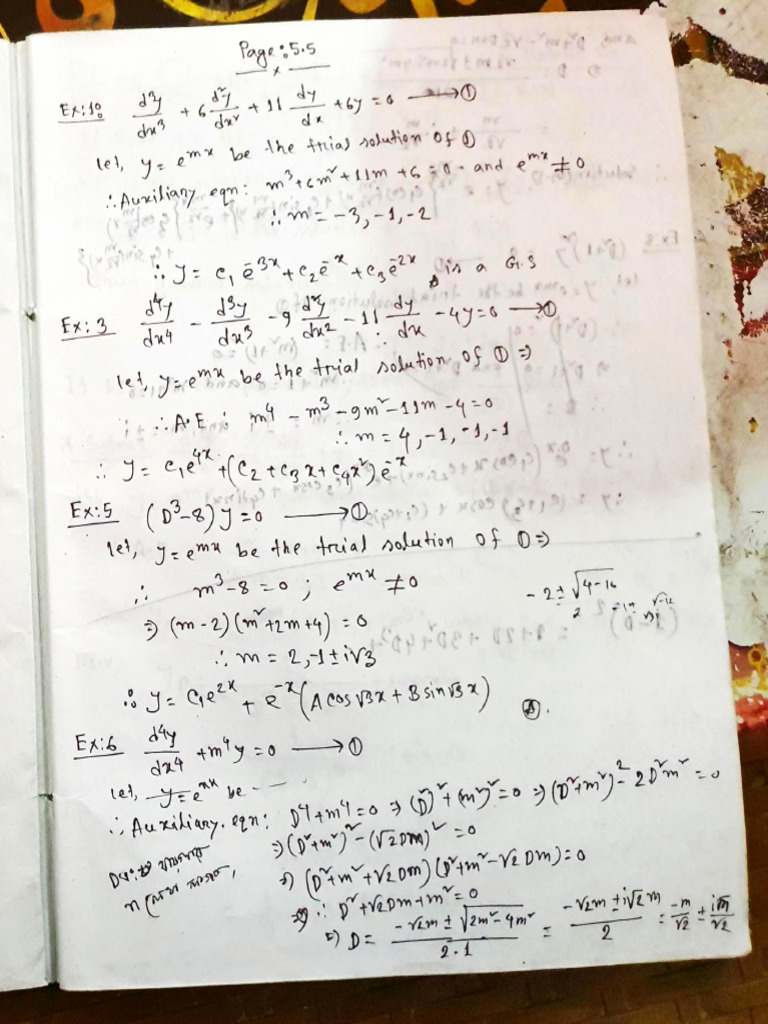 Page: 5.5
Ex: 1: d³y/dx³ + 6 d²y/dx² + 11 dy/dx + 6y = 0 ⟶ ①
let, y = e^mx be the trial solution of ①
∴ Auxiliary eqn: m³ + 6m² + 11m + 6 = 0 and e^mx ≠ 0
∴ m = -3, -1, -2
∴ y = c₁e^-3x + c₂e^-x + c₃e^-2x, is a G.S
Ex: 3 d⁴y/dx⁴ - d³y/dx³ - 9 d²y/dx² - 11 dy/dx - 4y = 0 ⟶ ①
let, y = e^mx be the trial solution of ① ⇒
∴ A.E: m⁴ - m³ - 9m² - 11m - 4 = 0
∴ m = 4, -1, -1, -1
∴ y = c₁e^4x + (c₂ + c₃x + c₄x²) e^-x
Ex: 5 (D³-8) y = 0 ⟶ ①
let, y = e^mx be the trial solution of ① ⇒
∴ m³ - 8 = 0 ; e^mx ≠ 0
-2 ± √4-16 / 2
⇒ (m-2) (m²+2m+4) = 0
∴ m = 2, -1 ± i√3
∴ y = c₁e^2x + e^-x (A cos √3x + B sin √3x)
Ex: 6 d⁴y/dx⁴ + m⁴y = 0 ⟶ ①
let, y = e^mx be - - -
∴ Auxiliary. eqn: D⁴ + m⁴ = 0 ⇒ (D²)² + (m²)² = 0 ⇒ (D²+m²)² - 2D²m² = 0
⇒ (D²+m²)² - (√2Dm)² = 0
⇒ (D²+m²+√2Dm) (D²+m²-√2Dm) = 0
∴ D²+√2Dm+m² = 0
⇒ D = -√2m ± √2m²-4m² / 2.1 = -√2m ± i√2m / 2 = -m/√2 ± im/√2